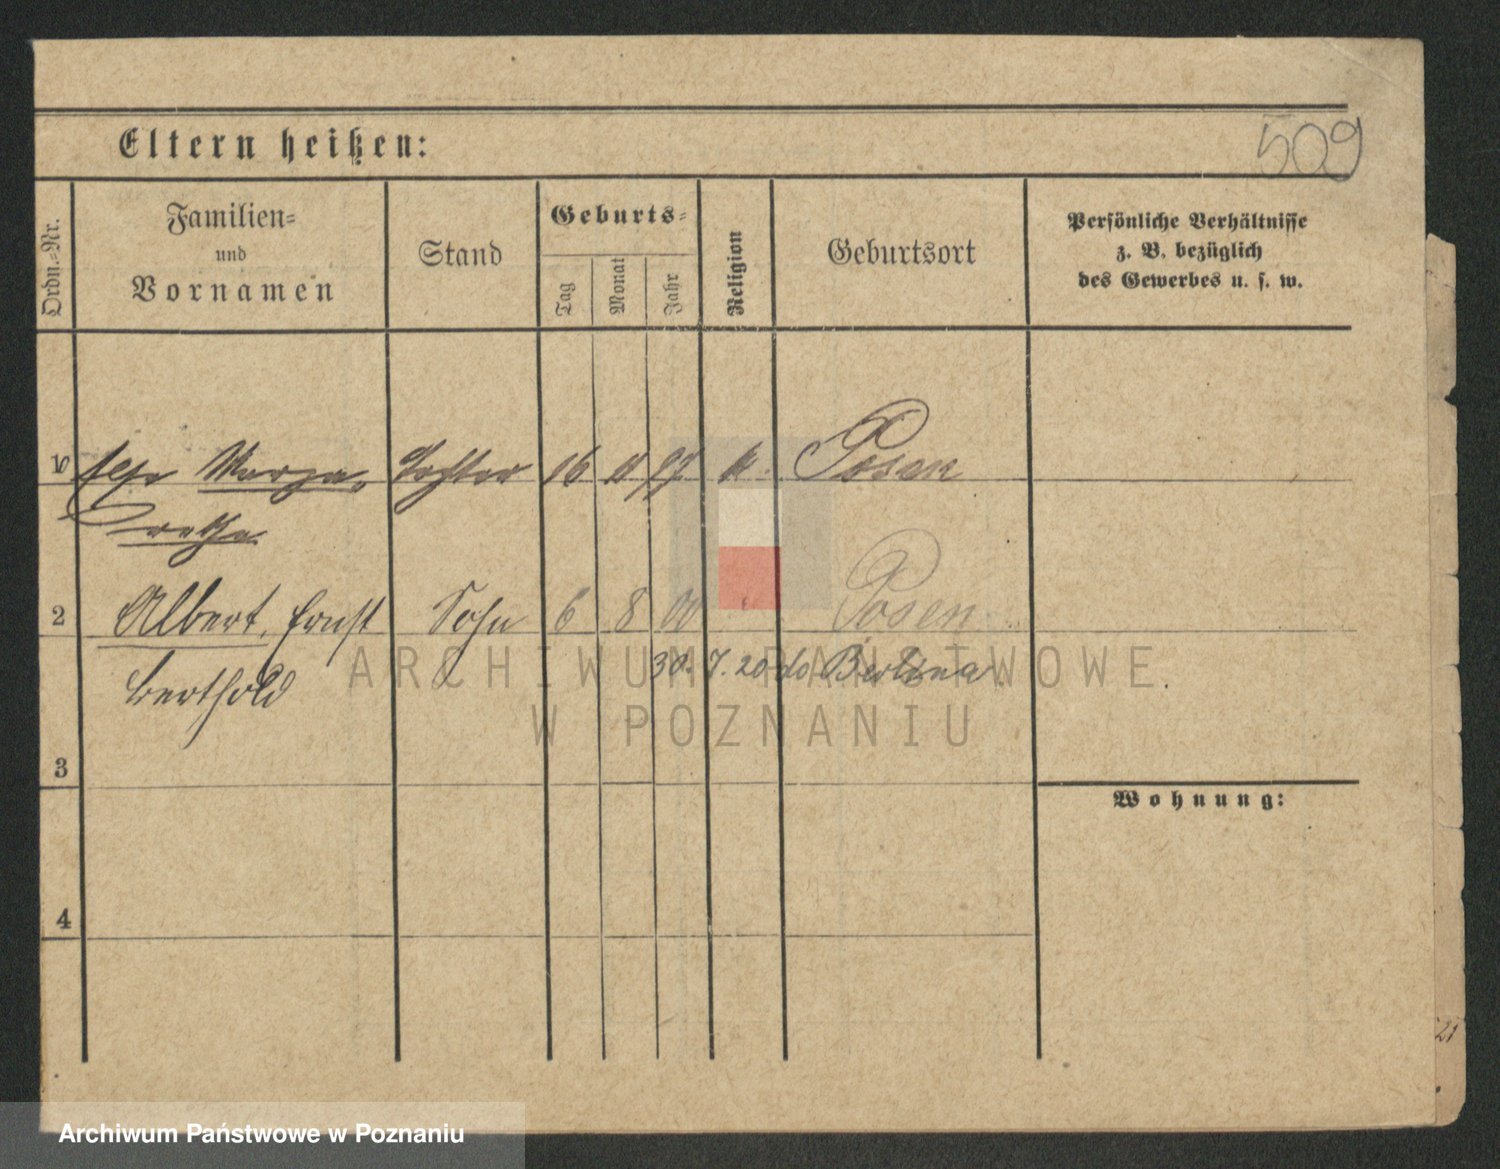 Eltern heißen:
509
Ordn.-Nr.
Familien-
und
Vornamen
Stand
Geburts-
Tag
Monat
Jahr
Religion
Geburtsort
Persönliche Verhältnisse
z. B. bezüglich
des Gewerbes u. s. w.
1 Else Marga- Tochter 16 11 97 k. Posen
retha
2 Albert, Ernst Sohn 6 8 00 Posen
30. 7. 20 do Berlin
Berthold
3
Wohnung:
4
21
ARCHIWUM PAŃSTWOWE
W POZNANIU
Archiwum Państwowe w Poznaniu